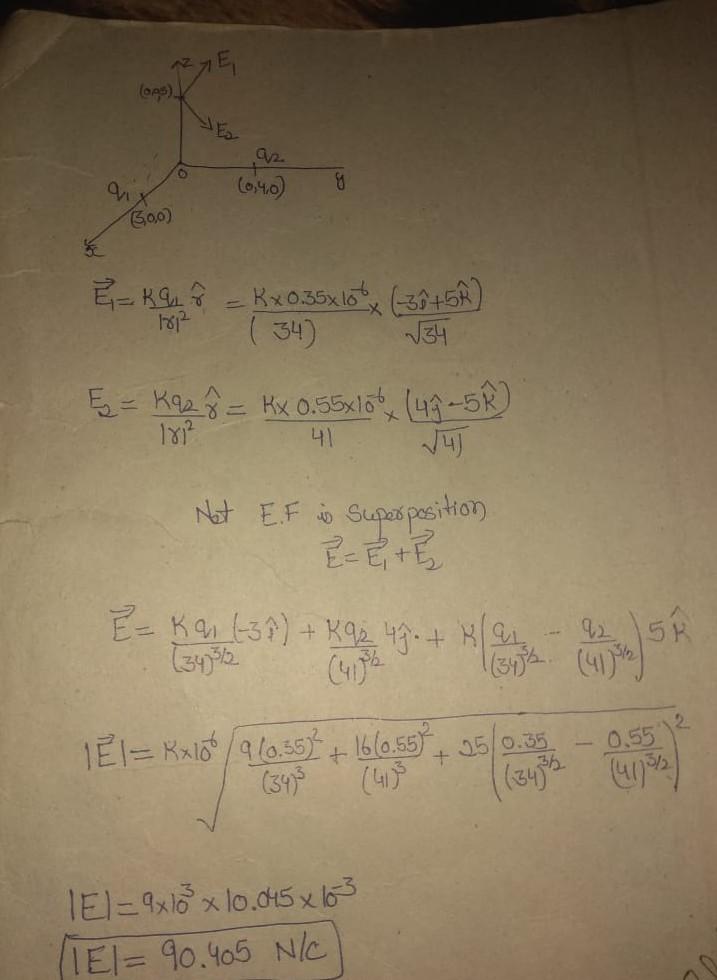 z E₁
(0,0,5)
E₂
q₂
O
(0,4,0) y
q₁
(3,0,0)
x
E⃗₁ = Kq₁/|r|² r̂ = K×0.35×10⁻⁶/(34) × (-3î+5k̂)/√34
E₂ = Kq₂/|r|² r̂ = K×0.55×10⁻⁶/41 × (4ĵ-5k̂)/√41
Net E.F is Superposition
E⃗ = E⃗₁ + E⃗₂
E⃗ = Kq₁/(34)^3/2 (-3î) + Kq₂/(41)^3/2 4ĵ + K(q₁/(34)^3/2 - q₂/(41)^3/2) 5k̂
|E⃗| = K×10⁻⁶ √(9(0.35)²/(34)³ + 16(0.55)²/(41)³ + 25(0.35/(34)^3/2 - 0.55/(41)^3/2)²)
|E| = 9×10³ × 10.045×10⁻³
|E| = 90.405 N/C